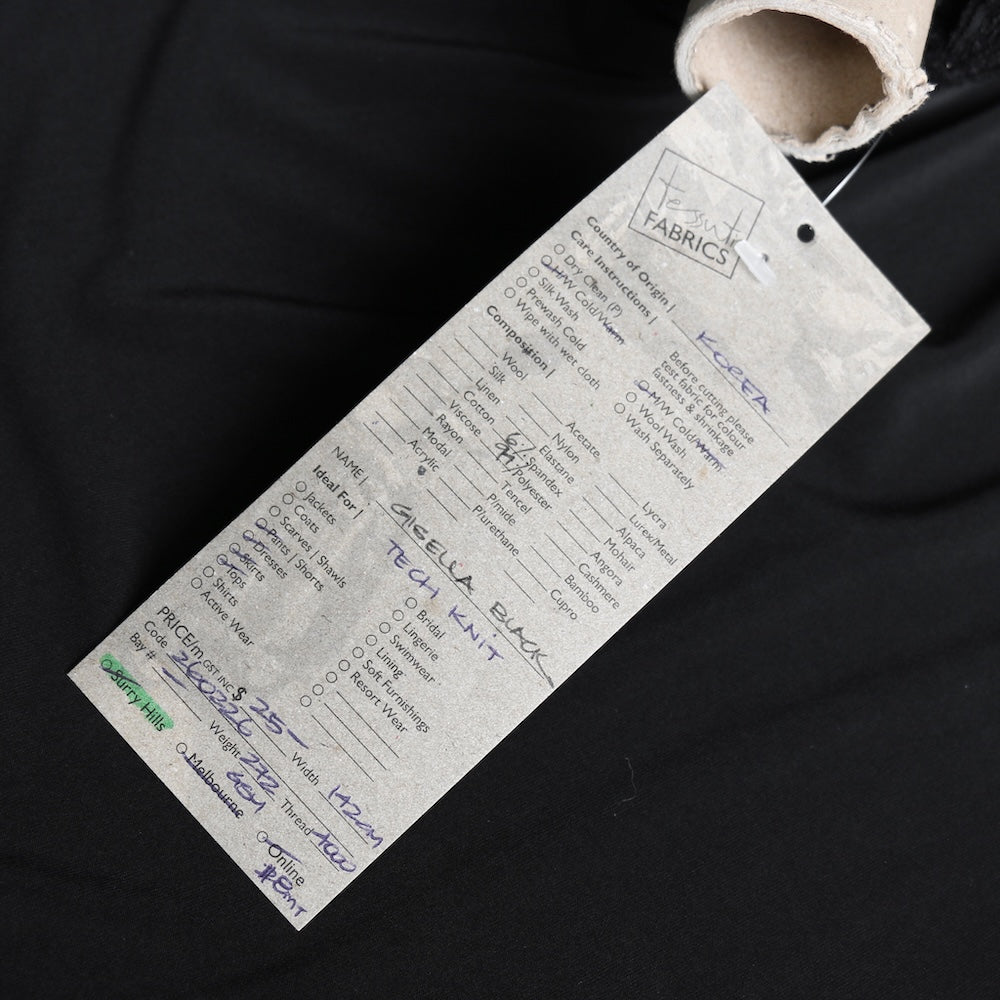 tessuti
FABRICS
Country of Origin | KOREA
Care Instructions |
Dry Clean (P)
H/W Cold/Warm
Silk Wash
Prewash Cold
Wipe with wet cloth
Before cutting please
test fabric for colour
fastness & shrinkage
M/W Cold/Warm
Wool Wash
Wash Separately
Composition |
Wool
Silk
Linen
Cotton
Viscose
Rayon
Modal
Acrylic
Acetate
Nylon
Elastane
6% Spandex
Polyester
Tencel
P/mide
P/urethane
Lycra
Lurex/Metal
Alpaca
Mohair
Angora
Cashmere
Bamboo
Cupro
NAME | GISELLA BLACK
TECH KNIT
Ideal For |
Jackets
Coats
Scarves | Shawls
Pants | Shorts
Dresses
Skirts
Tops
Shirts
Active Wear
Bridal
Lingerie
Swimwear
Lining
Soft Furnishings
Resort Wear
PRICE/m GST INC $ 25-
Code 260226
Width 142cm
Bay # -
Weight 272
GSM
Thread 1000
Surry Hills
Melbourne
Online